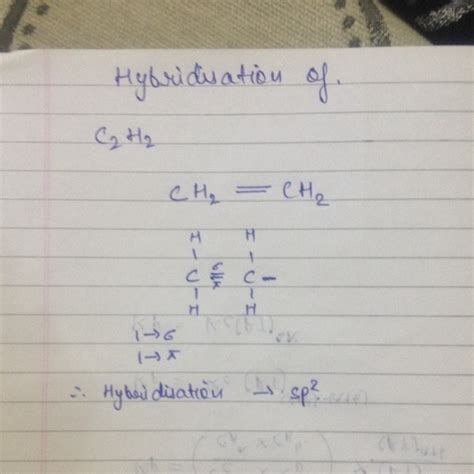 Hybridisation of.
C2H2
CH2 = CH2
H H
C σ π C -
H H
1→σ
1→π
∴ Hybridisation → sp².